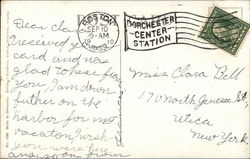 Dear Cla
I received y
card and was
glad to hear from
you, I am down
further on the
harbor for my
vacation, I wish
you were here
SEP 10
9-AM
DORCHESTER
CENTER
STATION
Miss Clara Bell
170 North Genesee St
Utica
New York